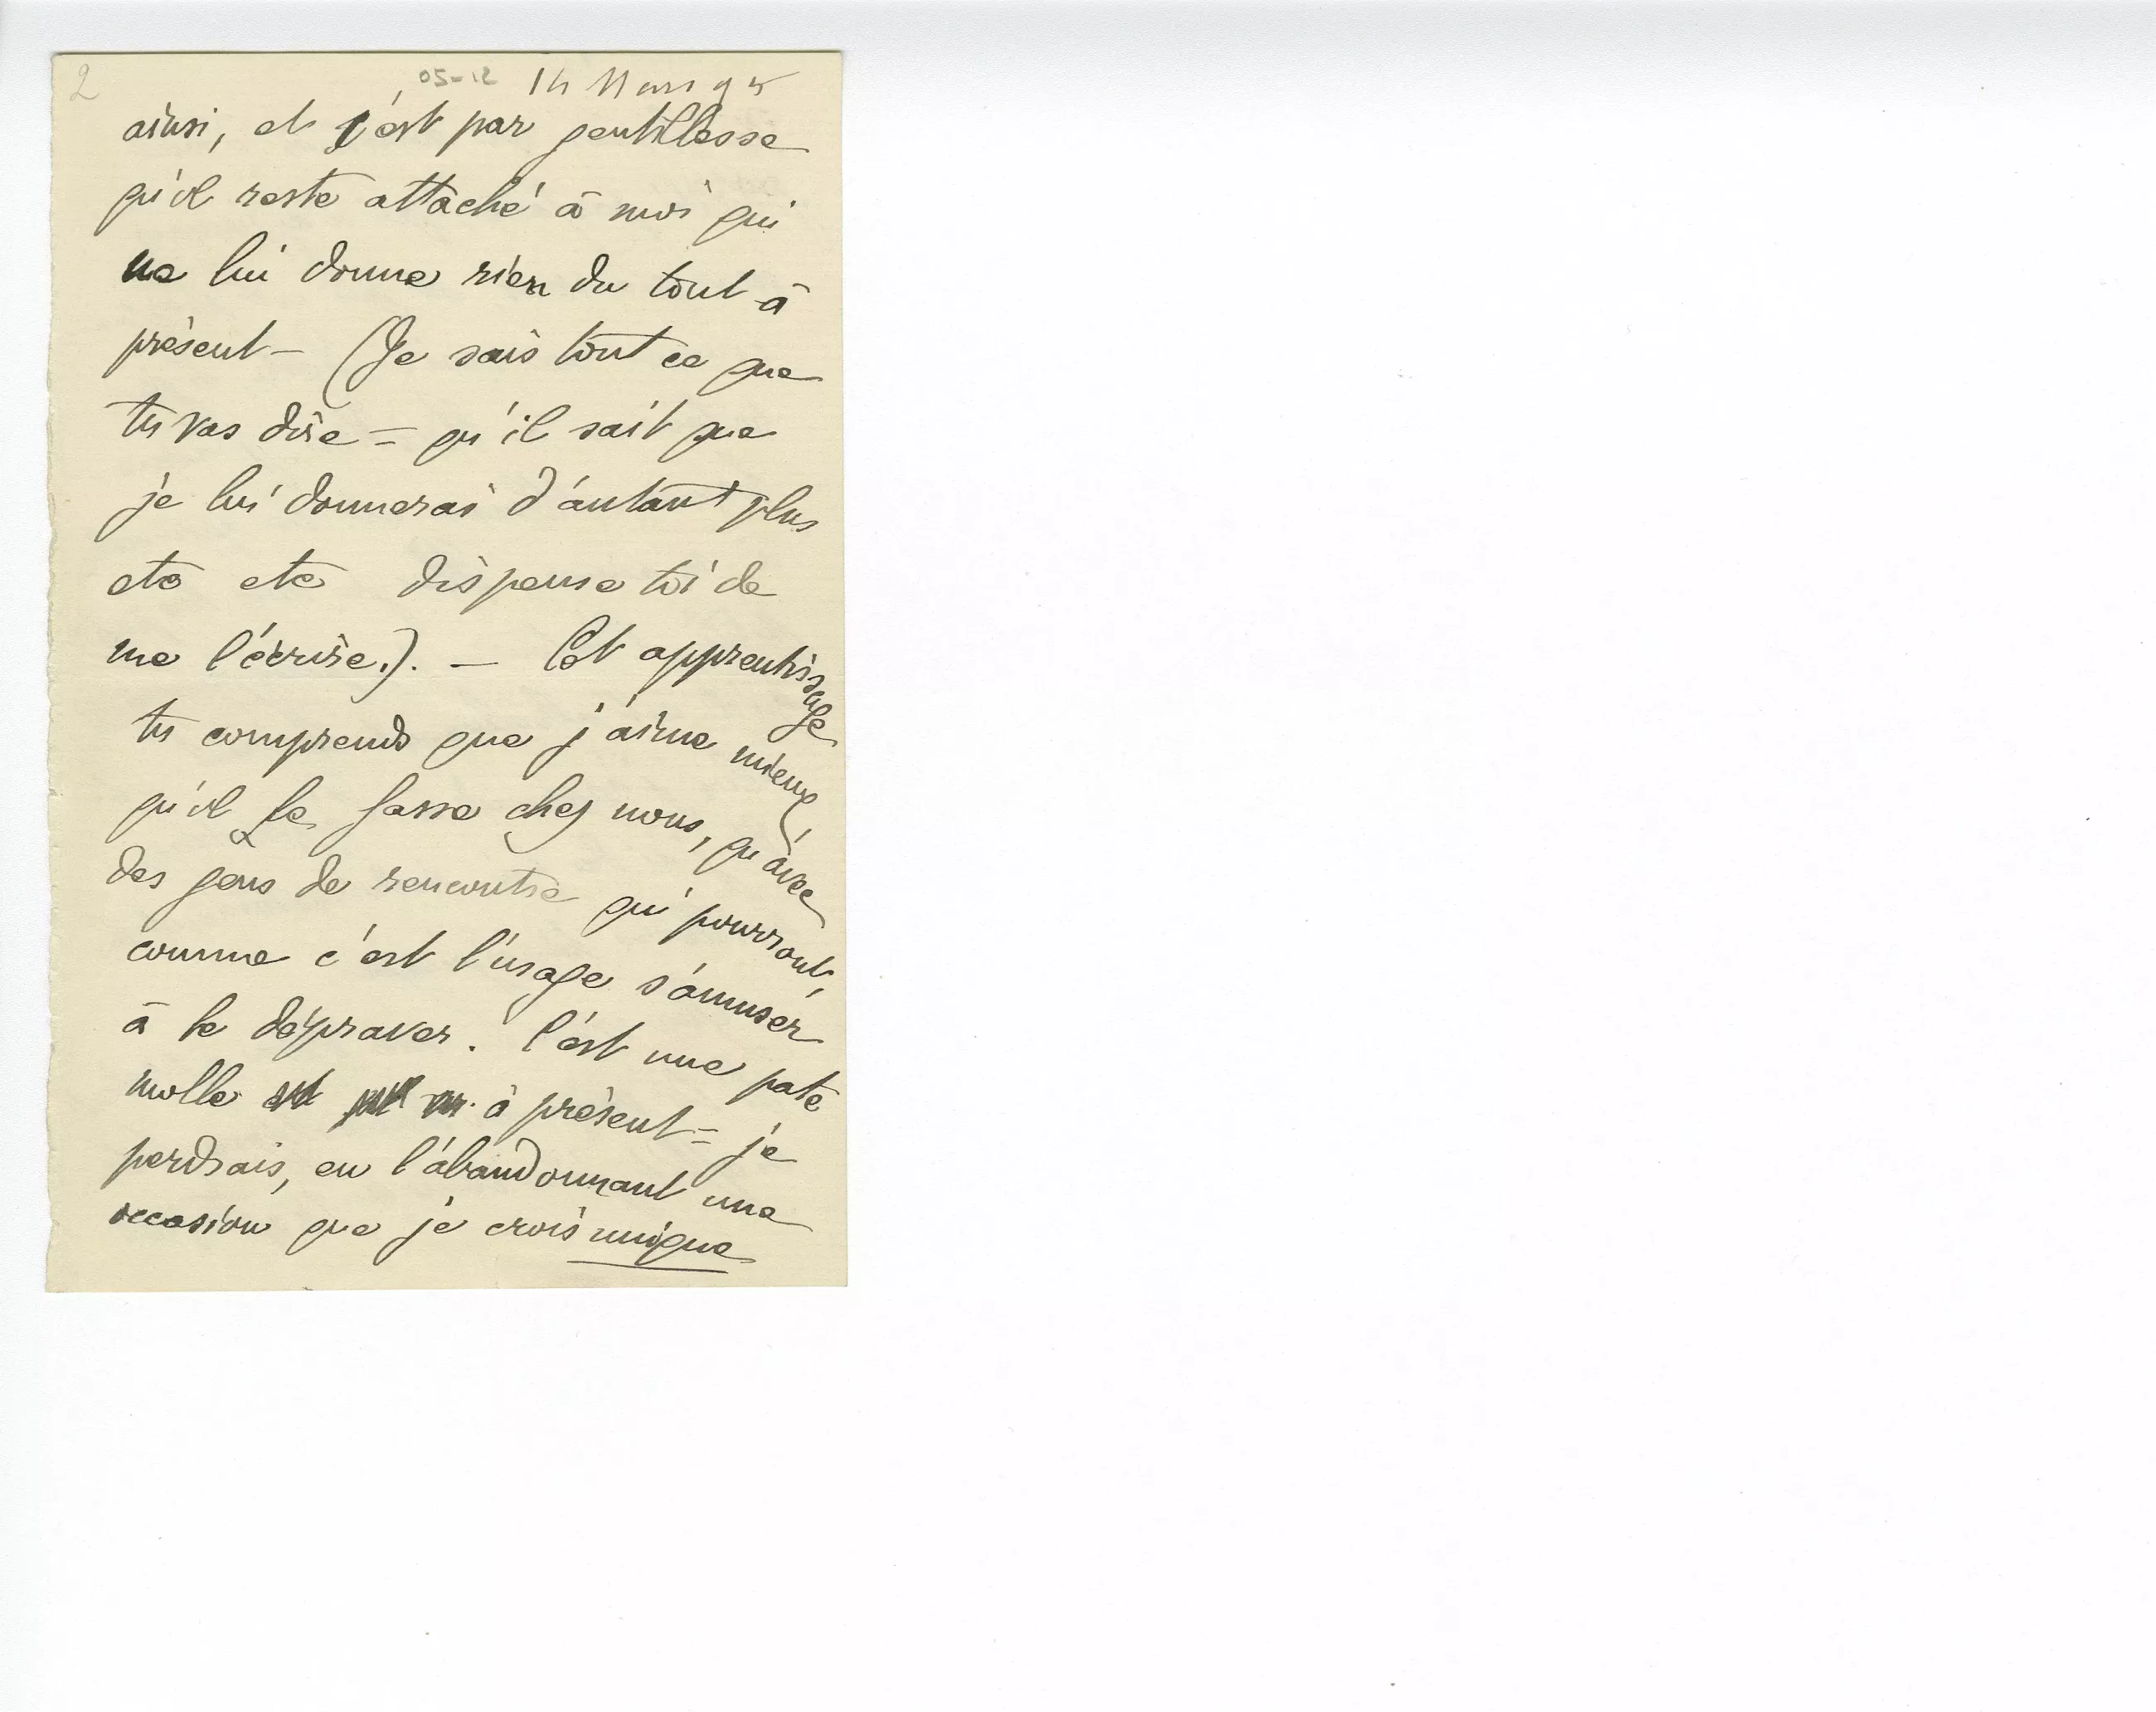 2
14 Mars 95
ainsi, et c'est par gentillesse
qu'il reste attaché à moi qui
ne lui donne rien du tout à
présent – (Je sais tout ce que
tu vas dire = qu'il sait que
je lui donnerai d'autant plus
etc etc dispense toi de
me l'écrire.). — Cet apprentissage
tu comprends que j'aime mieux
qu'il se fasse chez nous, qu'avec
des gens de rencontre qui pourront,
comme c'est l'usage s'amuser
à le dépraver. C'est une pate
molle à présent = je
perdrais, en l'abandonnant une
occasion que je crois unique